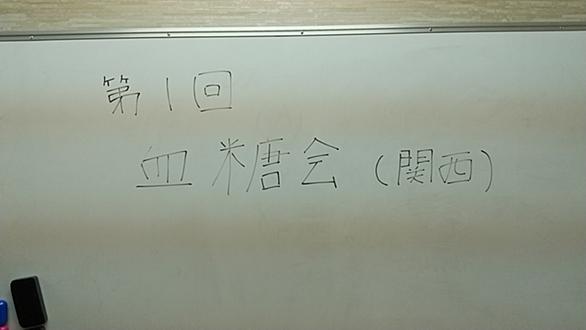 第1回
血糖会(関西)